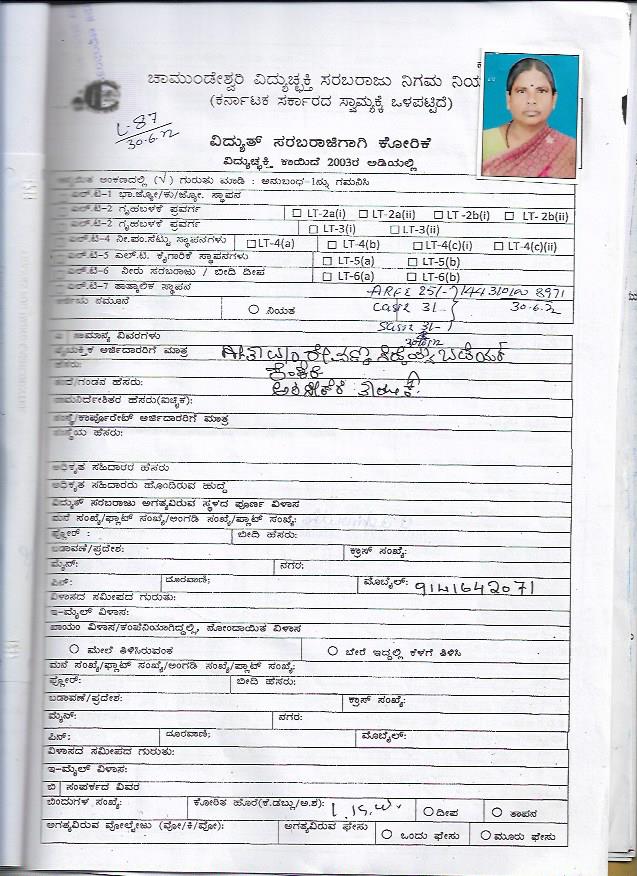 ಚಾಮುಂಡೇಶ್ವರಿ ವಿದ್ಯುಚ್ಛಕ್ತಿ ಸರಬರಾಜು ನಿಗಮ ನಿಯ
(ಕರ್ನಾಟಕ ಸರ್ಕಾರದ ಸ್ವಾಮ್ಯಕ್ಕೆ ಒಳಪಟ್ಟಿದೆ)
L-87
30-6-22
ವಿದ್ಯುತ್ ಸರಬರಾಜಿಗಾಗಿ ಕೋರಿಕೆ
ವಿದ್ಯುಚ್ಛಕ್ತಿ ಕಾಯಿದೆ 2003ರ ಅಡಿಯಲ್ಲಿ
ಅಂಕಣದಲ್ಲಿ (√) ಗುರುತು ಮಾಡಿ : ಅನುಬಂಧ-1ನ್ನು ಗಮನಿಸಿ
ಎಲ್.ಟಿ-1 ಭಾ.ಜ್ಯೋ/ಕು/ಜ್ಯೋ. ಸ್ಥಾಪನ
ಎಲ್.ಟಿ-2 ಗೃಹಬಳಕೆ ಪ್ರವರ್ಗ LT-2a(i) LT-2a(ii) LT-2b(i) LT- 2b(ii)
ಎಲ್.ಟಿ-2 ಗೃಹಬಳಕೆ ಪ್ರವರ್ಗ LT-3(i) LT-3(ii)
ಎಲ್.ಟಿ-4 ನೀ.ಪಂ.ಸೆಟ್ಟು ಸ್ಥಾಪನಗಳು LT-4(a) LT-4(b) LT-4(c)(i) LT-4(c)(ii)
ಎಲ್.ಟಿ-5 ಎಲ್.ಟಿ. ಕೈಗಾರಿಕೆ ಸ್ಥಾಪನಗಳು LT-5(a) LT-5(b)
ಎಲ್.ಟಿ-6 ನೀರು ಸರಬರಾಜು / ಬೀದಿ ದೀಪ LT-6(a) LT-6(b)
ಎಲ್.ಟಿ-7 ತಾತ್ಕಾಲಿಕ ಸ್ಥಾಪನ
25/-
ಅರ್ಜಿಯ ನಮೂನೆ ನಿಯತ 3/- 30-6-22
3/-
ಸಾಮಾನ್ಯ ವಿವರಗಳು
ವೈಯಕ್ತಿಕ ಅರ್ಜಿದಾರರಿಗೆ ಮಾತ್ರ
ಹೆಸರು:
ತಂದೆ/ಗಂಡನ ಹೆಸರು:
ನಾಮನಿರ್ದೇಶಿತರ ಹೆಸರು(ಐಚ್ಛಿಕ):
ಸಂಸ್ಥೆ/ಕಾರ್ಪೊರೇಟ್ ಅರ್ಜಿದಾರರಿಗೆ ಮಾತ್ರ
ಸಂಸ್ಥೆಯ ಹೆಸರು:
ಅಧಿಕೃತ ಸಹಿದಾರರ ಹೆಸರು
ಅಧಿಕೃತ ಸಹಿದಾರರು ಹೊಂದಿರುವ ಹುದ್ದೆ
ವಿದ್ಯುತ್ ಸರಬರಾಜು ಅಗತ್ಯವಿರುವ ಸ್ಥಳದ ಪೂರ್ಣ ವಿಳಾಸ
ಮನೆ ಸಂಖ್ಯೆ/ಫ್ಲಾಟ್ ಸಂಖ್ಯೆ/ಅಂಗಡಿ ಸಂಖ್ಯೆ/ಪ್ಲಾಟ್ ಸಂಖ್ಯೆ:
ಫ್ಲೋರ್ : ಬೀದಿ ಹೆಸರು:
ಬಡಾವಣೆ/ಪ್ರದೇಶ: ಕ್ರಾಸ್ ಸಂಖ್ಯೆ:
ಮೈನ್: ನಗರ:
ಪಿನ್: ದೂರವಾಣಿ; ಮೊಬೈಲ್: 9141642071
ವಿಳಾಸದ ಸಮೀಪದ ಗುರುತು:
ಇ-ಮೈಲ್ ವಿಳಾಸ:
ಖಾಯಂ ವಿಳಾಸ/ಕಂಪೆನಿಯಾಗಿದ್ದಲ್ಲಿ, ನೋಂದಾಯಿತ ವಿಳಾಸ
ಮೇಲೆ ತಿಳಿಸಿರುವಂತೆ ಬೇರೆ ಇದ್ದಲ್ಲಿ ಕೆಳಗೆ ತಿಳಿಸಿ
ಮನೆ ಸಂಖ್ಯೆ/ಫ್ಲಾಟ್ ಸಂಖ್ಯೆ/ಅಂಗಡಿ ಸಂಖ್ಯೆ/ಪ್ಲಾಟ್ ಸಂಖ್ಯೆ:
ಫ್ಲೋರ್: ಬೀದಿ ಹೆಸರು:
ಬಡಾವಣೆ/ಪ್ರದೇಶ: ಕ್ರಾಸ್ ಸಂಖ್ಯೆ:
ಮೈನ್: ನಗರ:
ಪಿನ್: ದೂರವಾಣಿ; ಮೊಬೈಲ್:
ವಿಳಾಸದ ಸಮೀಪದ ಗುರುತು:
ಇ-ಮೈಲ್ ವಿಳಾಸ:
ಬಿ ಸಂಪರ್ಕದ ವಿವರ
ಬಿಂದುಗಳ ಸಂಖ್ಯೆ: ಕೋರಿತ ಹೊರೆ(ಕೆ.ಡಬ್ಲು/ಅ.ಶ): ದೀಪ ತಾಪನ
ಅಗತ್ಯವಿರುವ ವೋಲ್ಟೇಜು (ವೋ/ಕಿ/ವೋ): ಅಗತ್ಯವಿರುವ ಫೇಸು ಒಂದು ಫೇಸು ಮೂರು ಫೇಸು